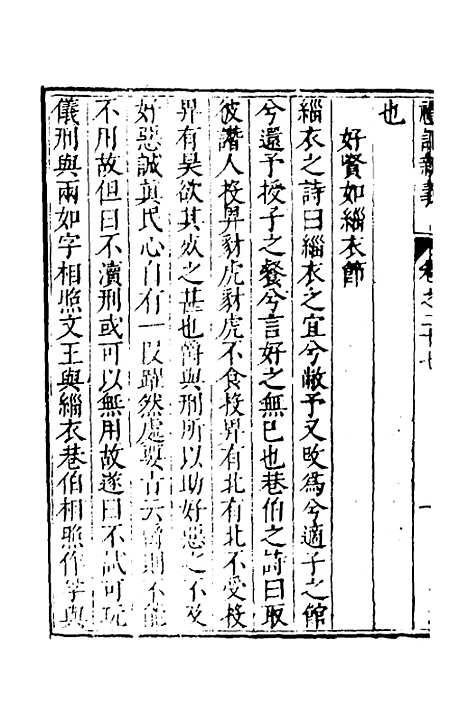 禮記新義 卷之二十七 一
也
好賢如緇衣節
緇衣之詩曰緇衣之宜兮敝予又改為兮適子之館
兮還予授子之餐兮言好之無已也巷伯之詩曰取
彼譖人投畀豺虎豺虎不食投畀有北有北不受投
畀有昊欲其死之甚也爵與刑所以助好惡之不及
好惡誠眞民心自有一段躍然處要古云爵則不能
不用故但曰不瀆刑或可以無用故遂曰不試可玩
儀刑與兩如字相照文王與緇衣巷伯相照作孚與